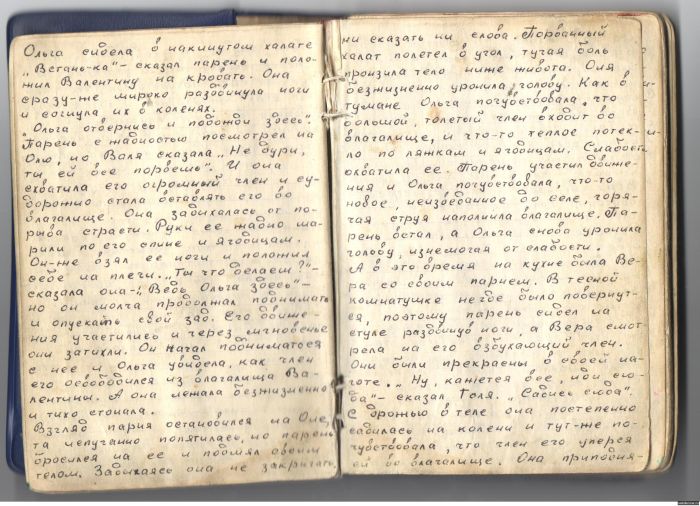 Ольга сидела в накинутом халате
„Встань-ка"- сказал парень и поло-
жил Валентину на кровать. Она
сразу-же широко раздвинула ноги
и согнула их в коленях.
"Ольга отвернись и подожди здесь".
Парень с жадностью посмотрел на
Олю, но Валя сказала „Не дури,
ты ей все порвешь". И она
схватила его огромный член и су-
дорожно стала вставлять его во
влагалище. Она задыхалась от по-
рыва страсти. Руки ее жадно ша-
рили по его спине и ягодицам.
Он-же взял ее ноги и положил
себе на плечи. „Ты что делаешь?"-
сказала она-„Ведь Ольга здесь"-
но он молча продолжал поднимать
и опускать свой зад. Его движе-
ния участились и через мгновенье
они затихли. Он начал подниматься
с нее и Ольга увидела, как член
его освободился из влагалища Ва-
лентины. А она лежала безжизненно
и тихо стонала.
Взгляд парня остановился на Оле,
та испуганно попятилась, но парень
бросился на ее и подмял своим
телом. Задыхаясь она не закричать,
ни сказать ни слова. Порванный
халат полетел в угол, тучая боль
пронзила тело ниже живота. Оля
безжизненно уронила голову. Как в
тумане Ольга почувствовала, что
большой, толстый член входит во
влагалище, и что-то теплое потек-
ло по ляжкам и ягодицам. Слабость
охватила ее. Парень участил движе-
ния и Ольга почувствовала, что-то
новое, неизведанное до селе, горя-
чая струя наполнила влагалище. Па-
рень встал, а Ольга снова уронила
голову, изнемогая от слабости.
А в это время на кухне была Ве-
ра со своим парнем. В тесной
комнатушке негде было повернут-
ся, поэтому парень сидел на
стуле раздвинув ноги, а Вера смот
рела на его взбухающий член.
Они были прекрасны в своей на-
готе. „Ну, кажется все, иди сю-
да"- сказал Толя. „Садись сюда".
С дрожью в теле она постепенно
садилась на колени и тут-же по-
чувствовала, что член его уперся
ей во влагалище. Она приподня-